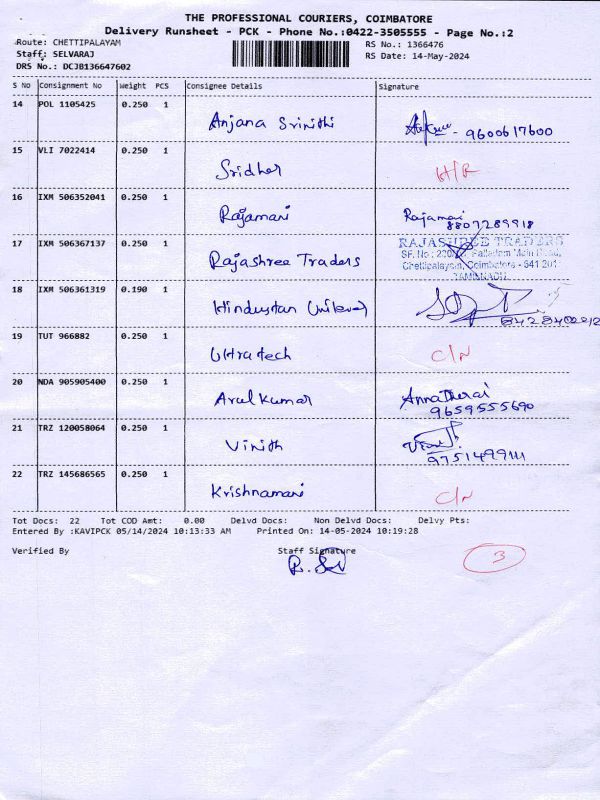 THE PROFESSIONAL COURIERS, COIMBATORE
Delivery Runsheet - PCK - Phone No.:0422-3505555 - Page No.:2
Route: CHETTIPALAYAM
RS No.: 1366476
Staff: SELVARAJ
RS Date: 14-May-2024
DRS No.: DCJB136647602
S No Consignment No Weight PCS Consignee Details Signature
14 POL 1105425 0.250 1 Anjana Srinithi - 9600617600
15 VLI 7022414 0.250 1 Sridher H/R
16 IXM 506352041 0.250 1 Rajamari Rajamari
8807289918
17 IXM 506367137 0.250 1 Rajashree Traders RAJASHREE TRADERS
SF. No: Palladam Main Road,
Chettipalayam, Coimbatore - 641 201
TAMILNADU
18 IXM 506361319 0.190 1 Hindustan Unilever
19 TUT 966882 0.250 1 Ultratech C/N
20 NDA 905905400 0.250 1 Arul Kumar Annatherai
9659555690
21 TRZ 120058064 0.250 1 Vinith
9751499111
22 TRZ 145686565 0.250 1 Krishnamari C/N
Tot Docs: 22 Tot COD Amt: 0.00 Delvd Docs: Non Delvd Docs: Delvy Pts:
Entered By :KAVIPCK 05/14/2024 10:13:33 AM Printed On: 14-05-2024 10:19:28
Verified By Staff Signature
3